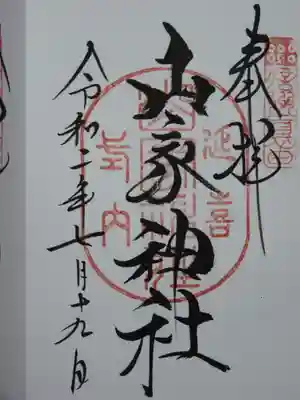 奉拝
山家神社
令和二年七月十九日
延喜
式内